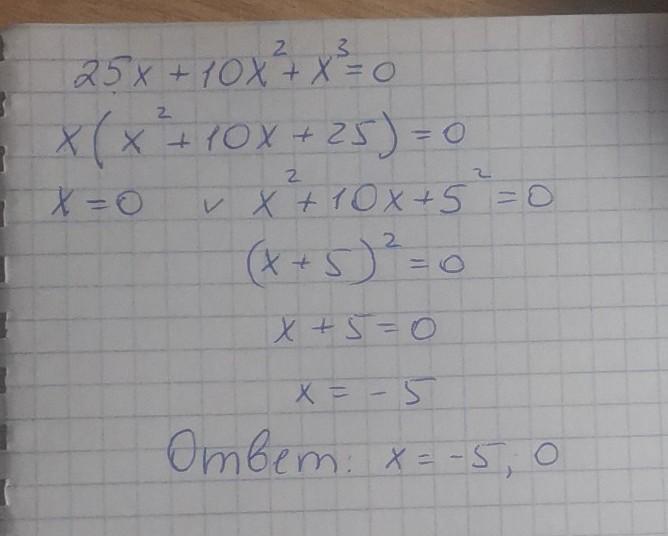 25x + 10x² + x³ = 0
x(x² + 10x + 25) = 0
x = 0 ∨ x² + 10x + 5² = 0
(x + 5)² = 0
x + 5 = 0
x = -5
Ответ: x = -5; 0